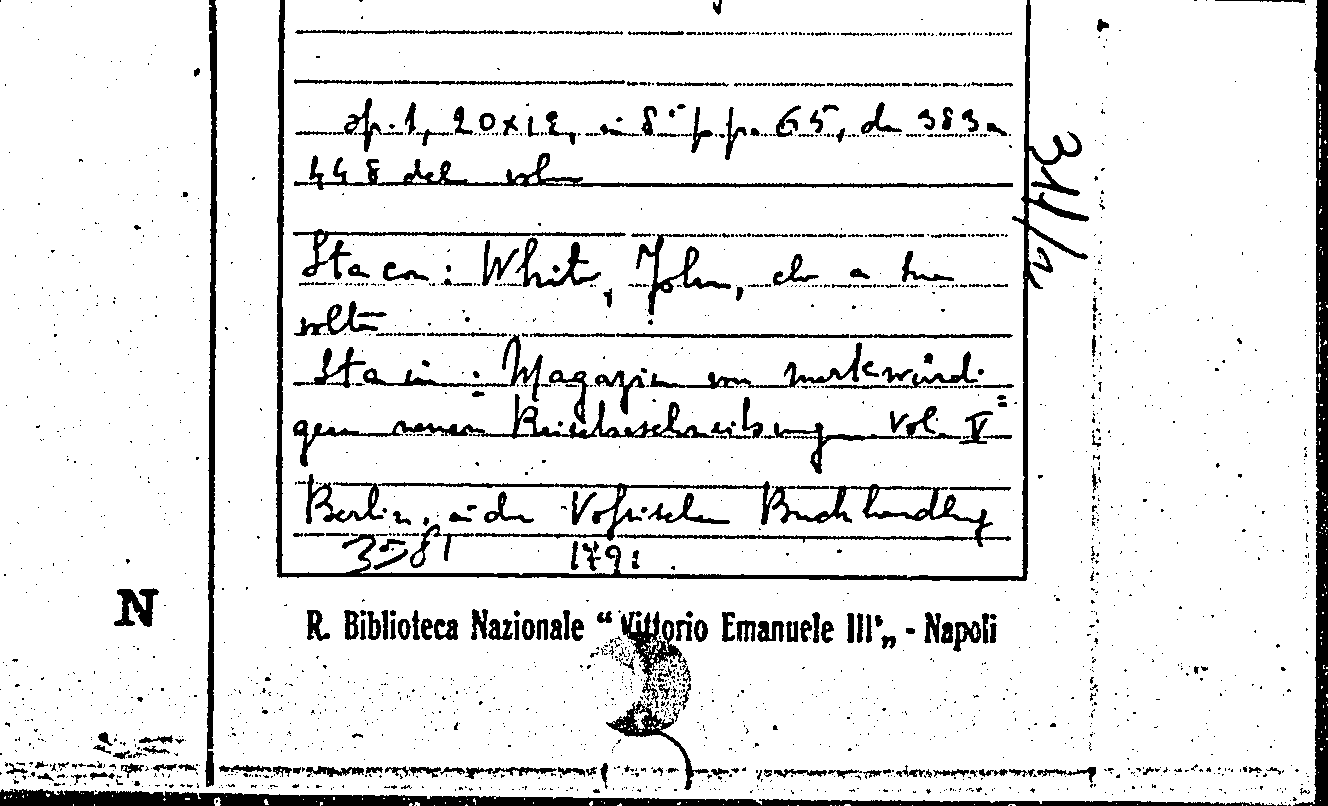 op. 1, 20x12, in 8° pp. 65, da 383 a
448 del vol
Sta con: White, John, che a sua
volta
Sta in: Magazin von merkwürdi-
gen neuen Reisebeschreibungen Vol. V=
Berlin, in der Voßischen Buchhandlung
3581 1791
311/2
N
R. Biblioteca Nazionale “Vittorio Emanuele III„ - Napoli